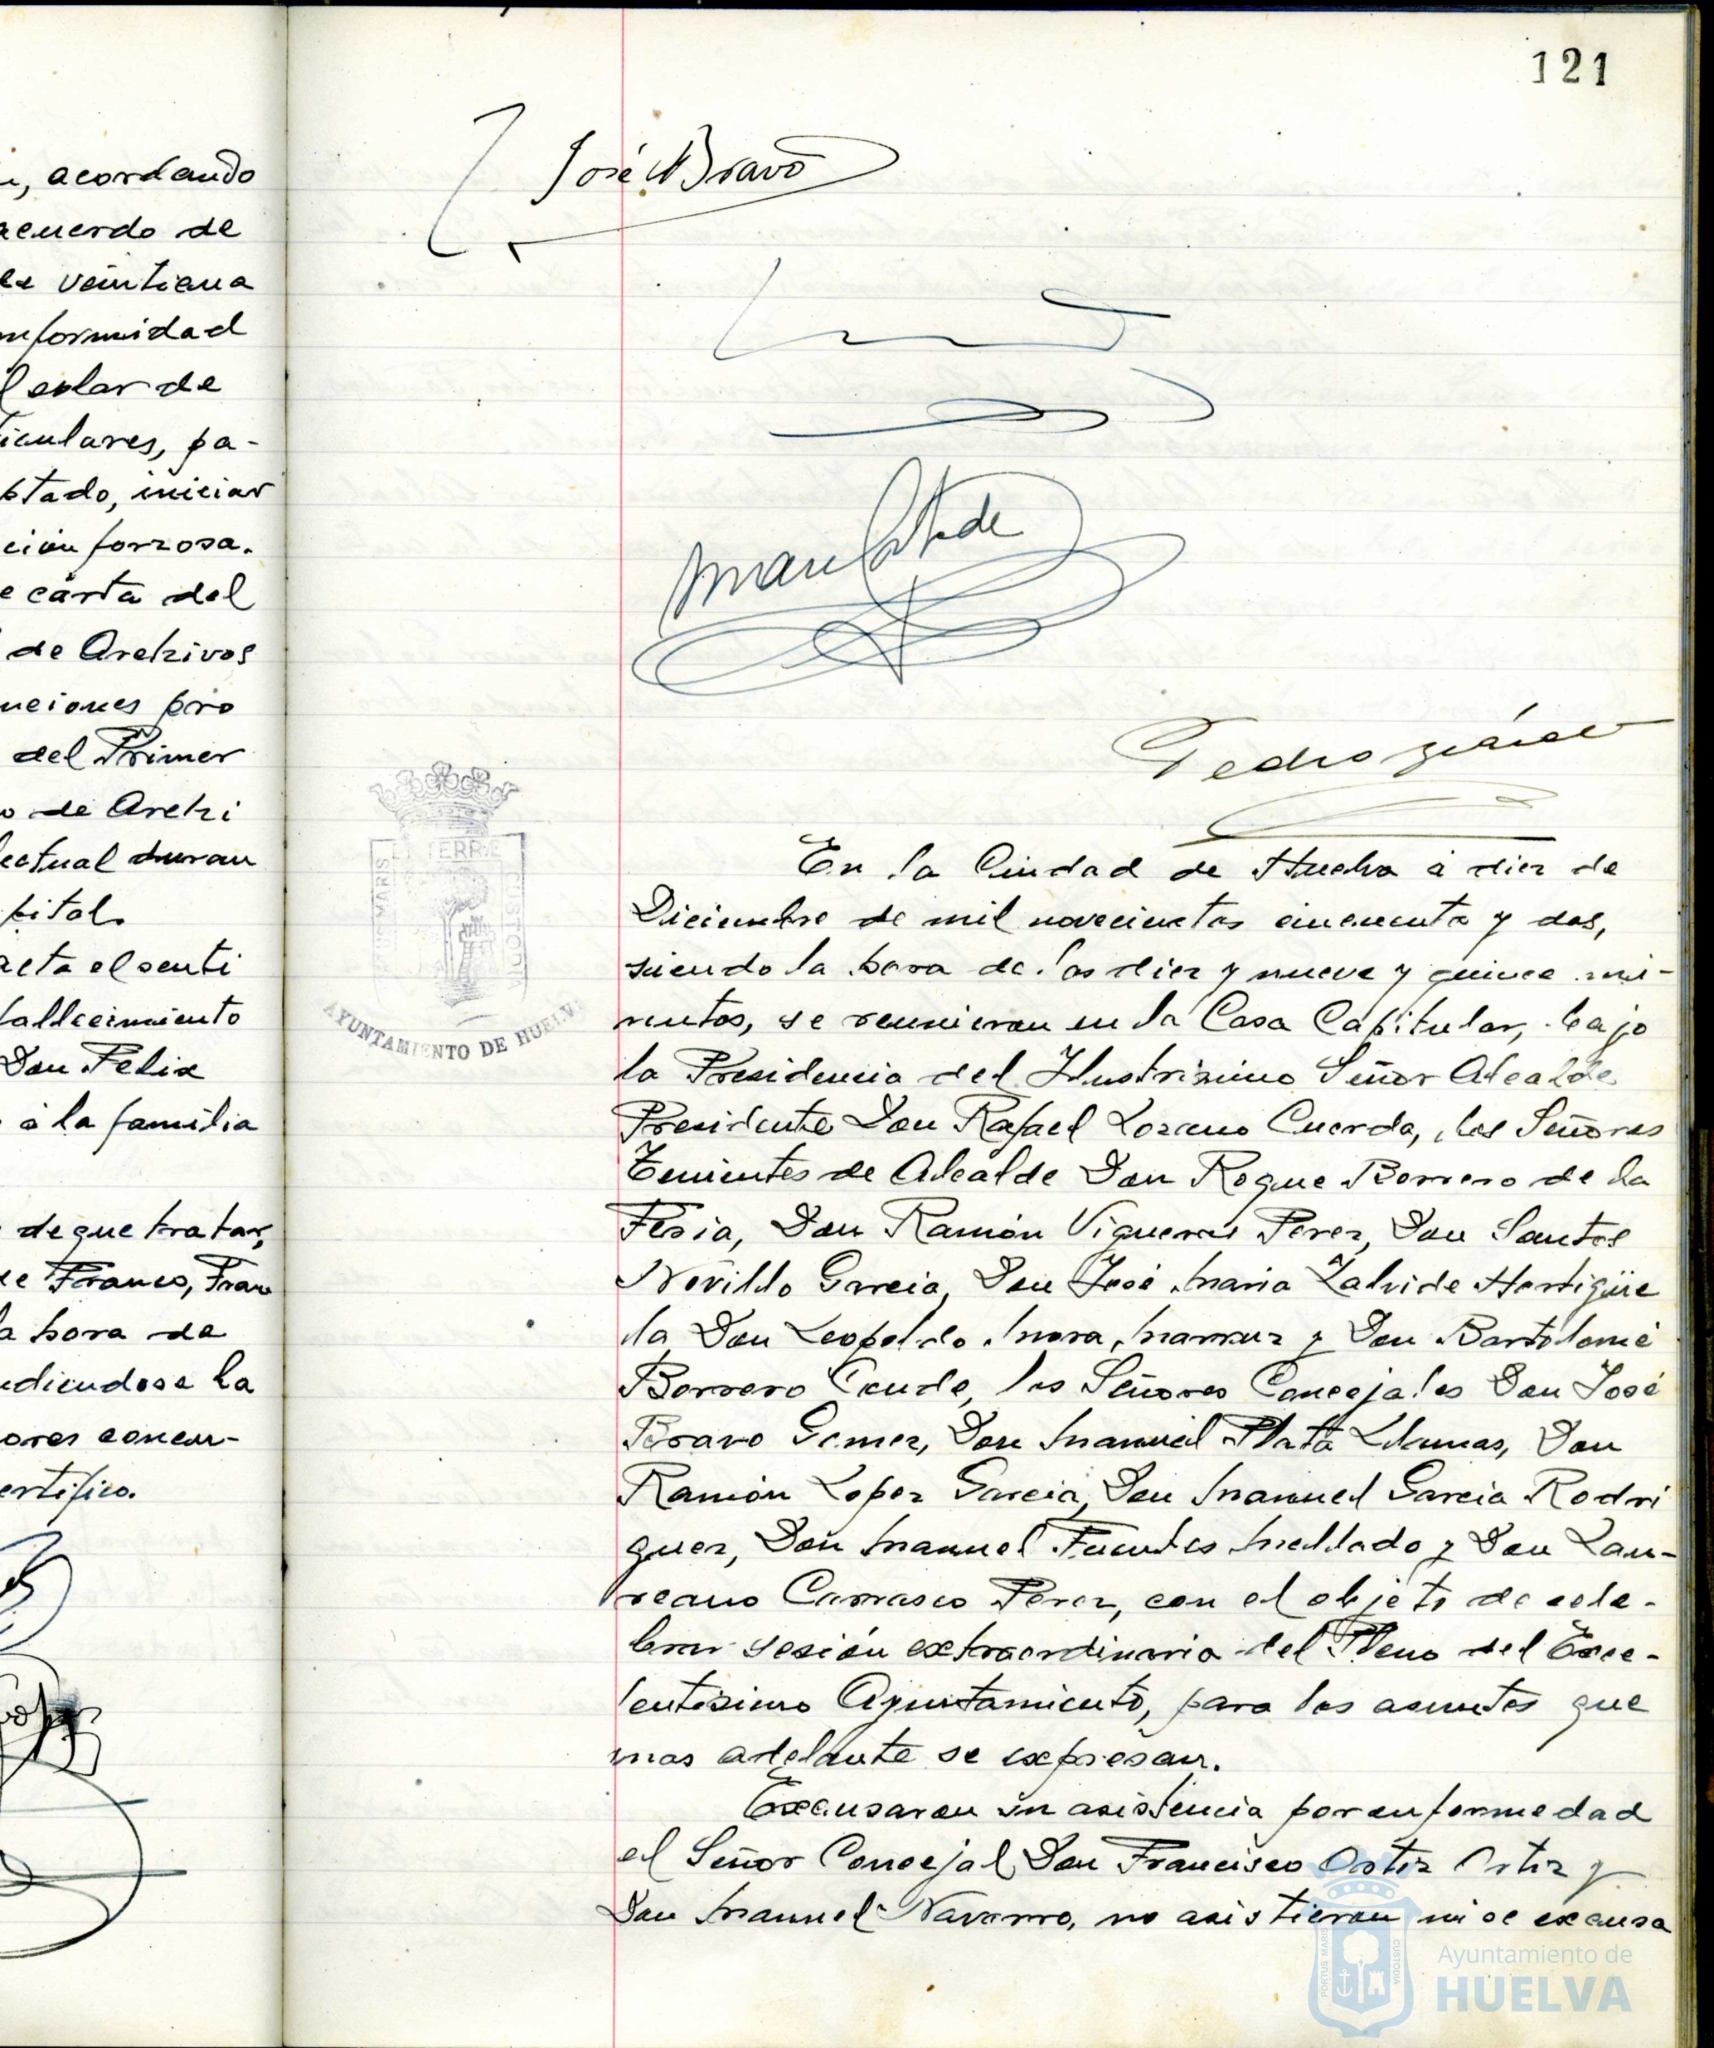 121
, acordando
acuerdo de
veintiuna
nformidad
l solar de
ticulares, pa-
ptado, iniciar
ción forzosa.
e carta del
de Archivos
nciones pro
del Primer
o de Archi
lectual duran
pital.
acta el senti
fallecimiento
Don Felix
á la familia
de que tratar,
Franco, Fran
la hora de
ndiendose la
ores concu-
ertifico.
José Bravo
Pedro
TERRÆ
CUSTODIA
AYUNTAMIENTO DE HUELVA
En la Ciudad de Huelva á diez de
Diciembre de mil novecientos cincuenta y dos,
siendo la hora de las diez y nueve y quince mi-
nutos, se reunieron en la Casa Capitular, bajo
la Presidencia del Ilustrisimo Señor Alcalde
Presidente Don Rafael Lozano Cuerda, los Señores
Tenientes de Alcalde Don Roque Borrero de la
Feria, Don Ramón Vigueras Perez, Don Santos
Novillo Garcia, Don José Maria Zalvide Hortigüe
la Don Leopoldo Mora Marruz y Don Bartolomé
Borrero Conde, los Señores Concejales Don José
Bravo Gomez, Don Manuel Plata Llamas, Don
Ramón Lopez Garcia, Don Manuel Garcia Rodri
guez, Don Manuel Fuentes Mellado y Don Lau-
reano Carrasco Perez, con el objeto de cele-
brar sesión extraordinaria del Pleno del Exce-
lentisimo Ayuntamiento, para los asuntos que
mas adelante se expresan.
Excusaron su asistencia por enfermedad
el Señor Concejal Don Francisco Ortiz Ortiz y
Don Manuel Navarro, no asistieron ni se excusa
PORTUS MARIS
CUSTODIA
Ayuntamiento de
HUELVA